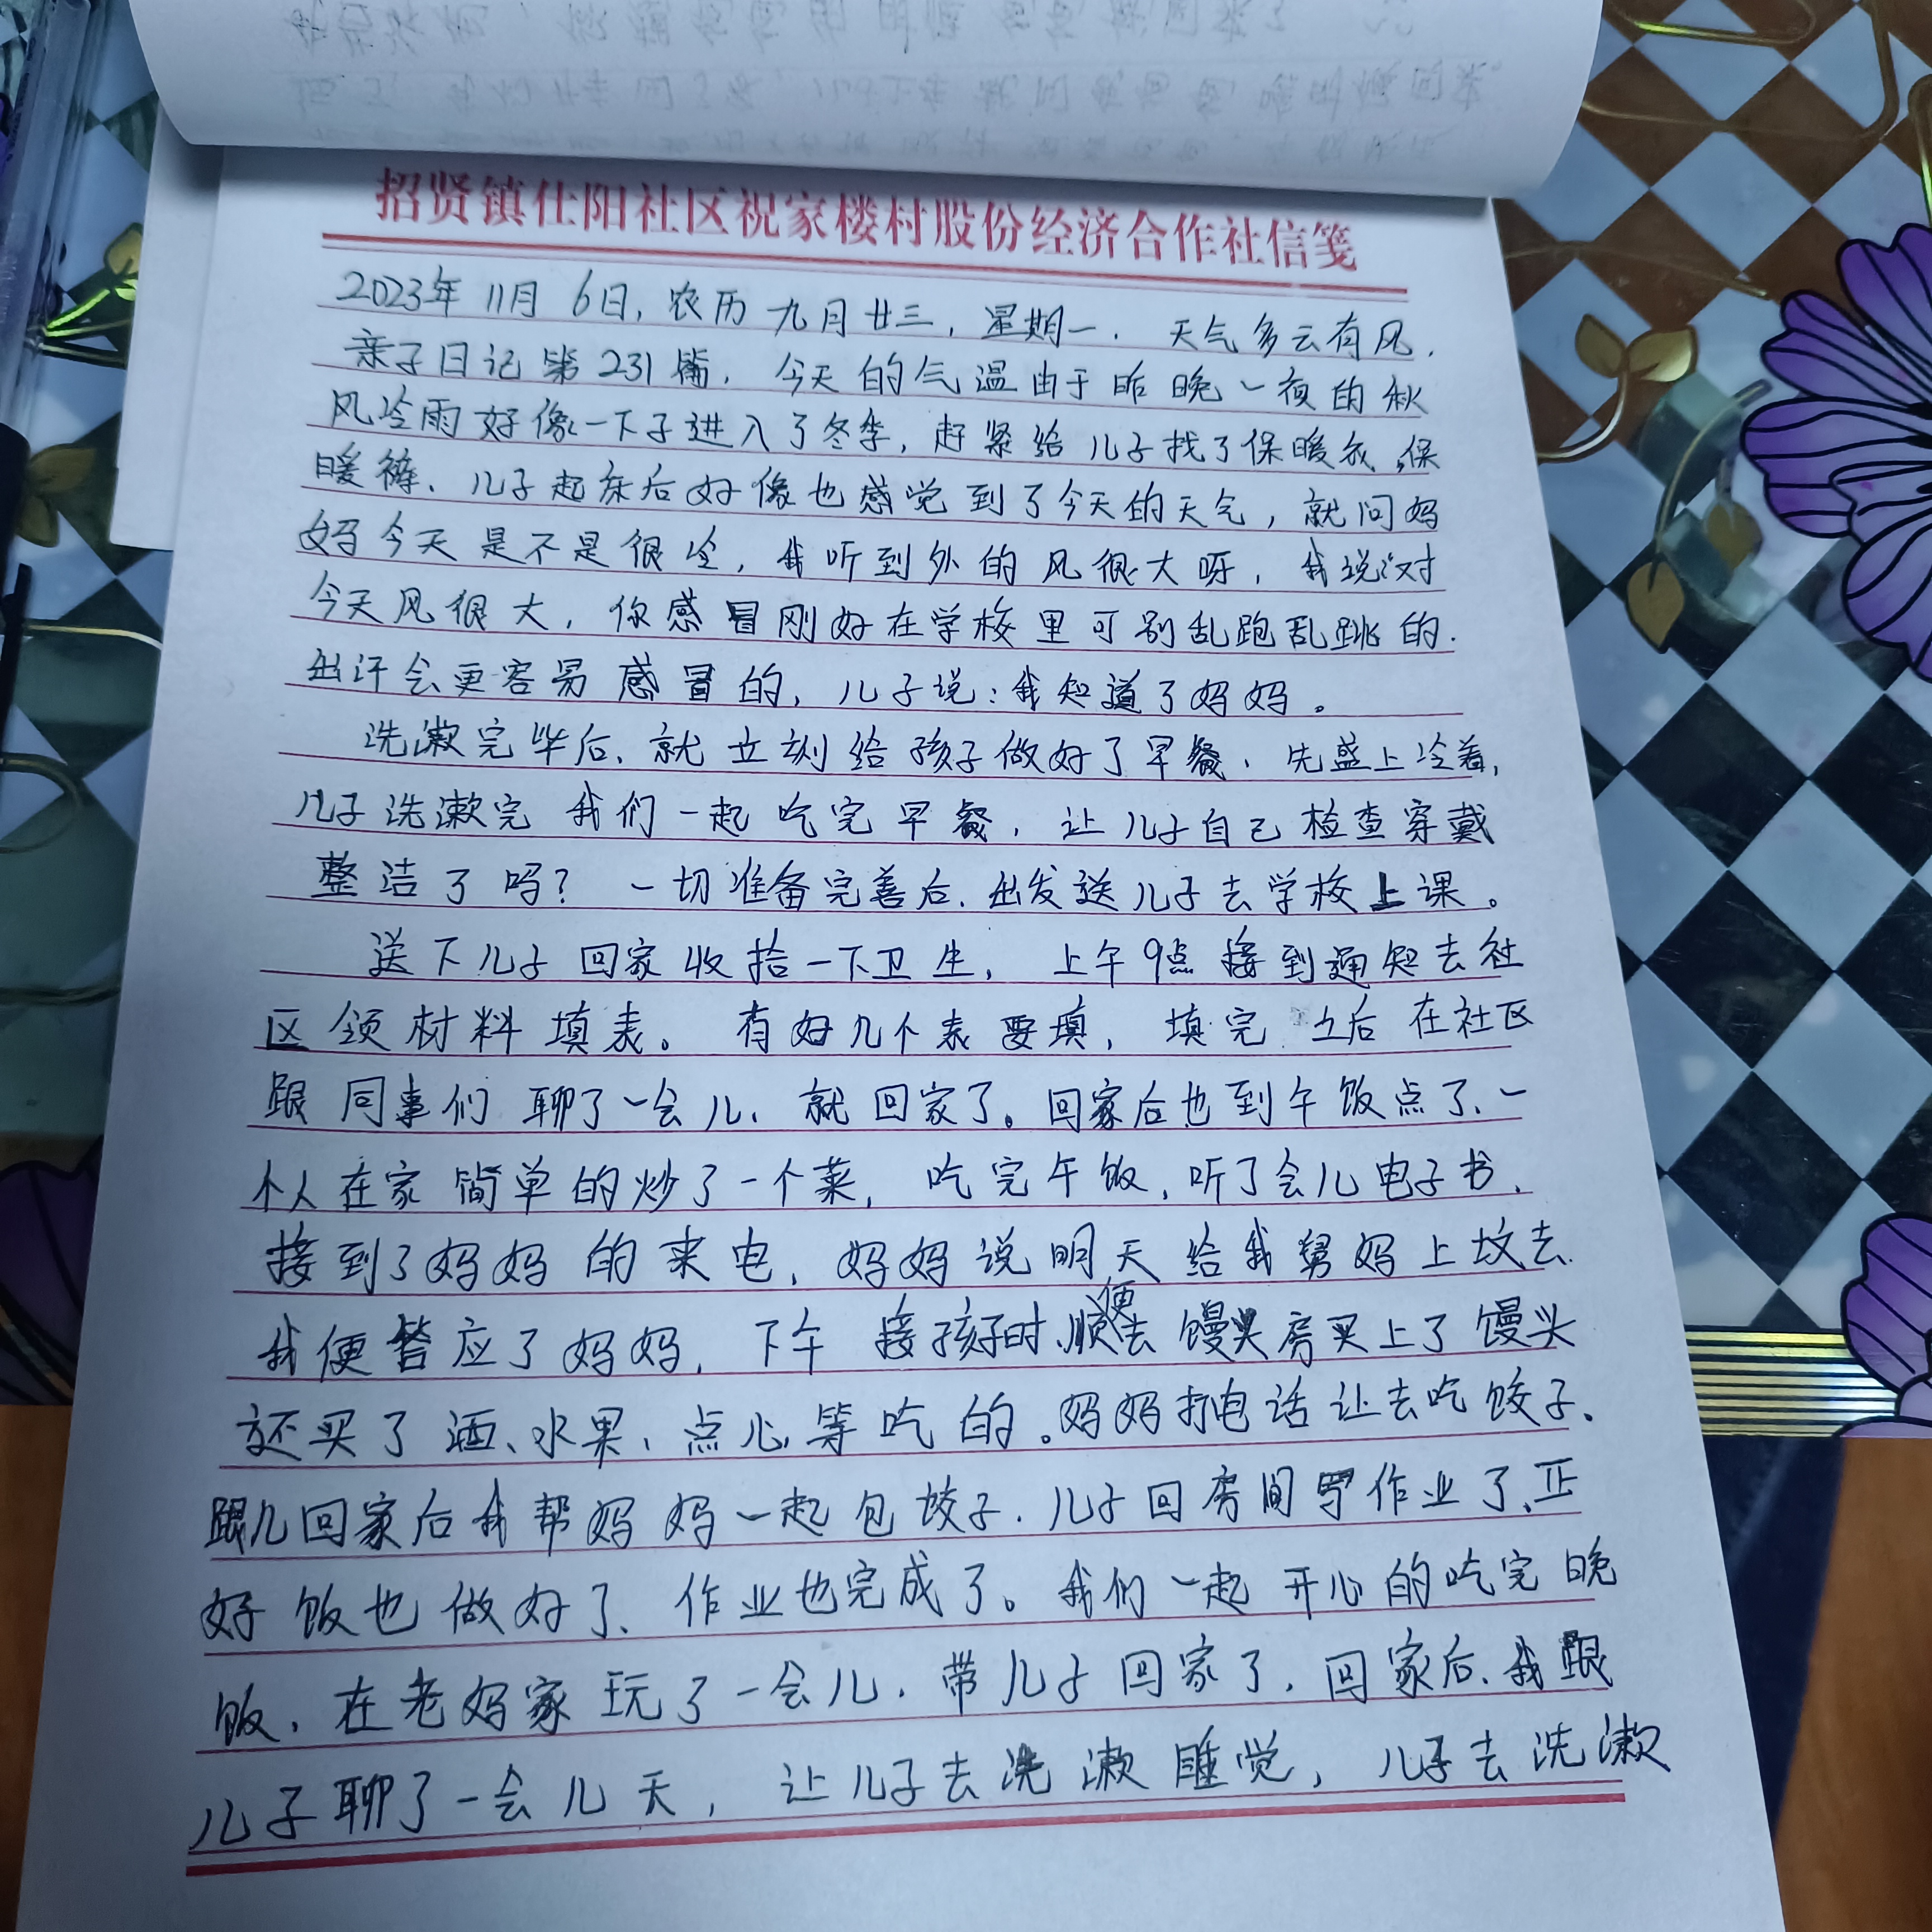 招贤镇仕阳社区祝家楼村股份经济合作社信笺
2023年11月6日,农历九月廿三,星期一.天气多云有风.
亲子日记第231篇.今天的气温由于昨晚一夜的秋
风冷雨好像一下子进入了冬季,赶紧给儿子找了保暖衣、保
暖裤、儿子起床后好像也感觉到了今天的天气,就问妈
妈今天是不是很冷,我听到外的风很大呀,我说:对
今天风很大,你感冒刚好在学校里可别乱跑乱跳的.
出汗会更容易感冒的,儿子说:我知道了妈妈。
洗漱完毕后、就立刻给孩子做好了早餐、先盛上冷着,
儿子洗漱完我们一起吃完早餐,让儿子自己检查穿戴
整洁了吗?一切准备完善后.出发送儿子去学校上课。
送下儿子回家收拾一下卫生,上午9点接到通知去社
区领材料填表。有好几个表要填,填完之后在社区
跟同事们聊了一会儿、就回家了。回家后也到午饭点了、一
个人在家简单的炒了一个菜,吃完午饭,听了会儿电子书、
接到了妈妈的来电,妈妈说明天给我舅妈上坟去.
我便答应了妈妈,下午接孩子时、顺便去馒头房买上了馒头
还买了酒、水果、点心等吃的。妈妈打电话让去吃饺子.
跟儿回家后我帮妈妈一起包饺子.儿子回房间写作业了、正
好饭也做好了、作业也完成了。我们一起开心的吃完晚
饭,在老妈家玩了一会儿.带儿子回家了.回家后、我跟
儿子聊了一会儿天,让儿子去洗漱睡觉,儿子去洗漱